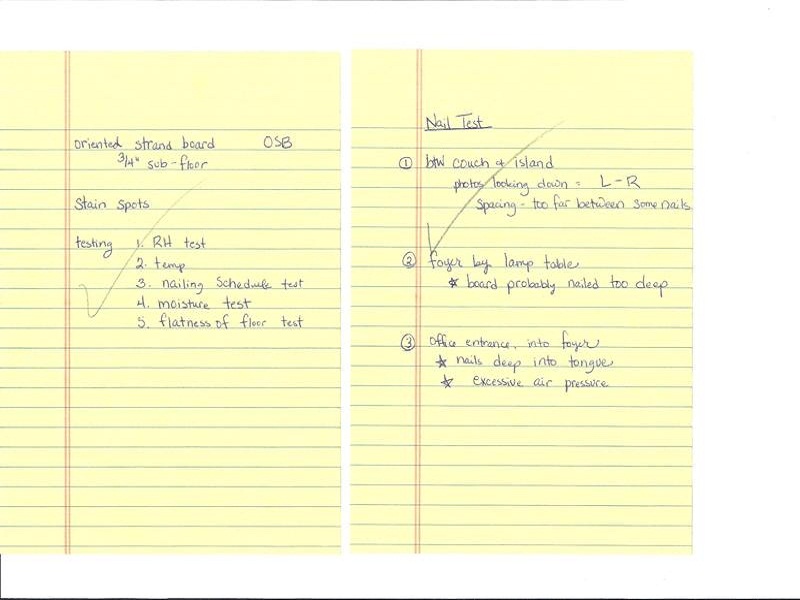 oriented strand board OSB
3/4" sub-floor
Stain Spots
testing 1. RH test
2. temp
3. nailing Schedule test
4. moisture test
5. flatness of floor test
Nail Test
① btw couch & island
photos looking down = L-R
Spacing - too far between some nails
② foyer by lamp table
* board probably nailed too deep
③ office entrance, into foyer
* nails deep into tongue
* excessive air pressure